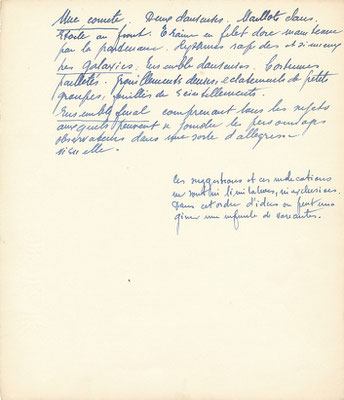 Une comète. Deux danseuses. Maillots clairs.
Etoile au front. Traîne en filet doré manteau
par la Rythmes rapides et sinueux
Les Galaxies. Ensemble danseuses. Costumes
pailletés. Grouillements denses éclatements de petits
groupes, fouillis de scintillements.
Ensemble final comprenant tous les sujets
auxquels peuvent se joindre les personnages
observateurs dans une sorte d'allégresse
visuelle.
Ces suggestions et ces indications
ne sont ni limitatives, ni exclusives.
Dans cet ordre d'idées on peut ima
giner une infinité de variantes.